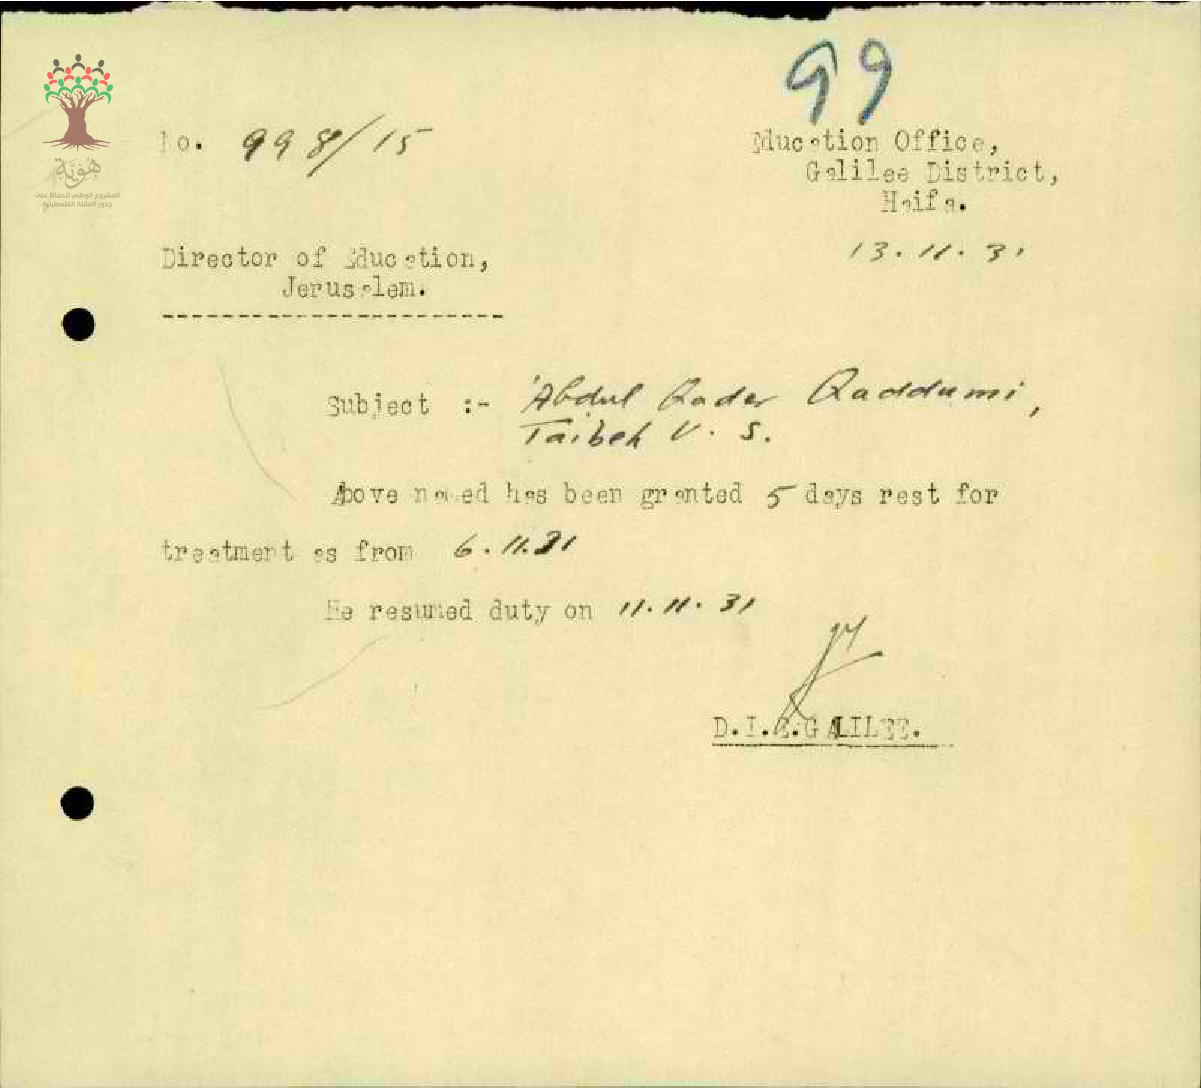 99
هوية
المشروع الوطني للحفاظ على
جذور العائلة الفلسطينية
No. 998/15
Education Office,
Galilee District,
Haifa.
13.11.31
Director of Education,
Jerusalem.
Subject :- 'Abdul Qader Qaddumi,
Taibeh V. S.
Above named has been granted 5 days rest for
treatment as from 6.11.31
He resumed duty on 11.11.31
D.I.E.GALILEE.